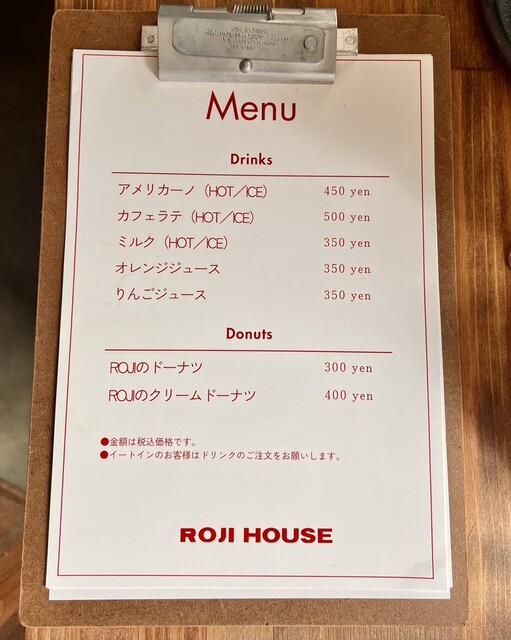 Menu
Drinks
アメリカーノ（HOT／ICE） 450 yen
カフェラテ（HOT／ICE） 500 yen
ミルク（HOT／ICE） 350 yen
オレンジジュース 350 yen
りんごジュース 350 yen
Donuts
ROJIのドーナツ 300 yen
ROJIのクリームドーナツ 400 yen
●金額は税込価格です。
●イートインのお客様はドリンクのご注文をお願いします。
ROJI HOUSE